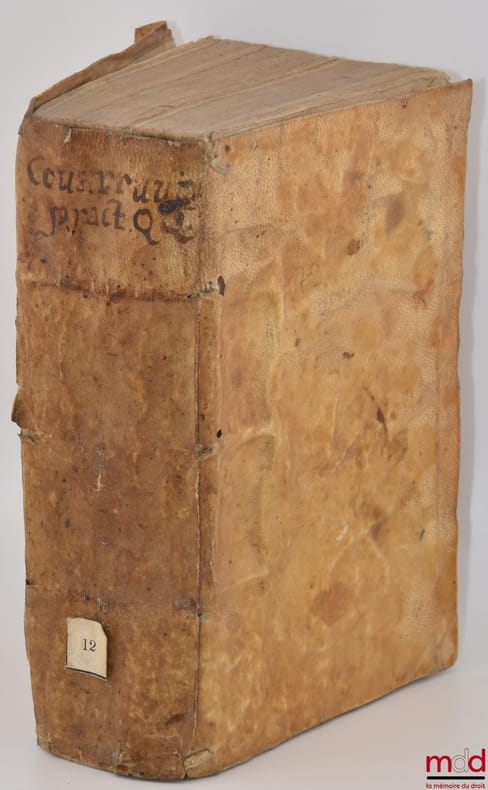 Couarruuias
pract. QQ.
12
mdd
la mémoire du droit